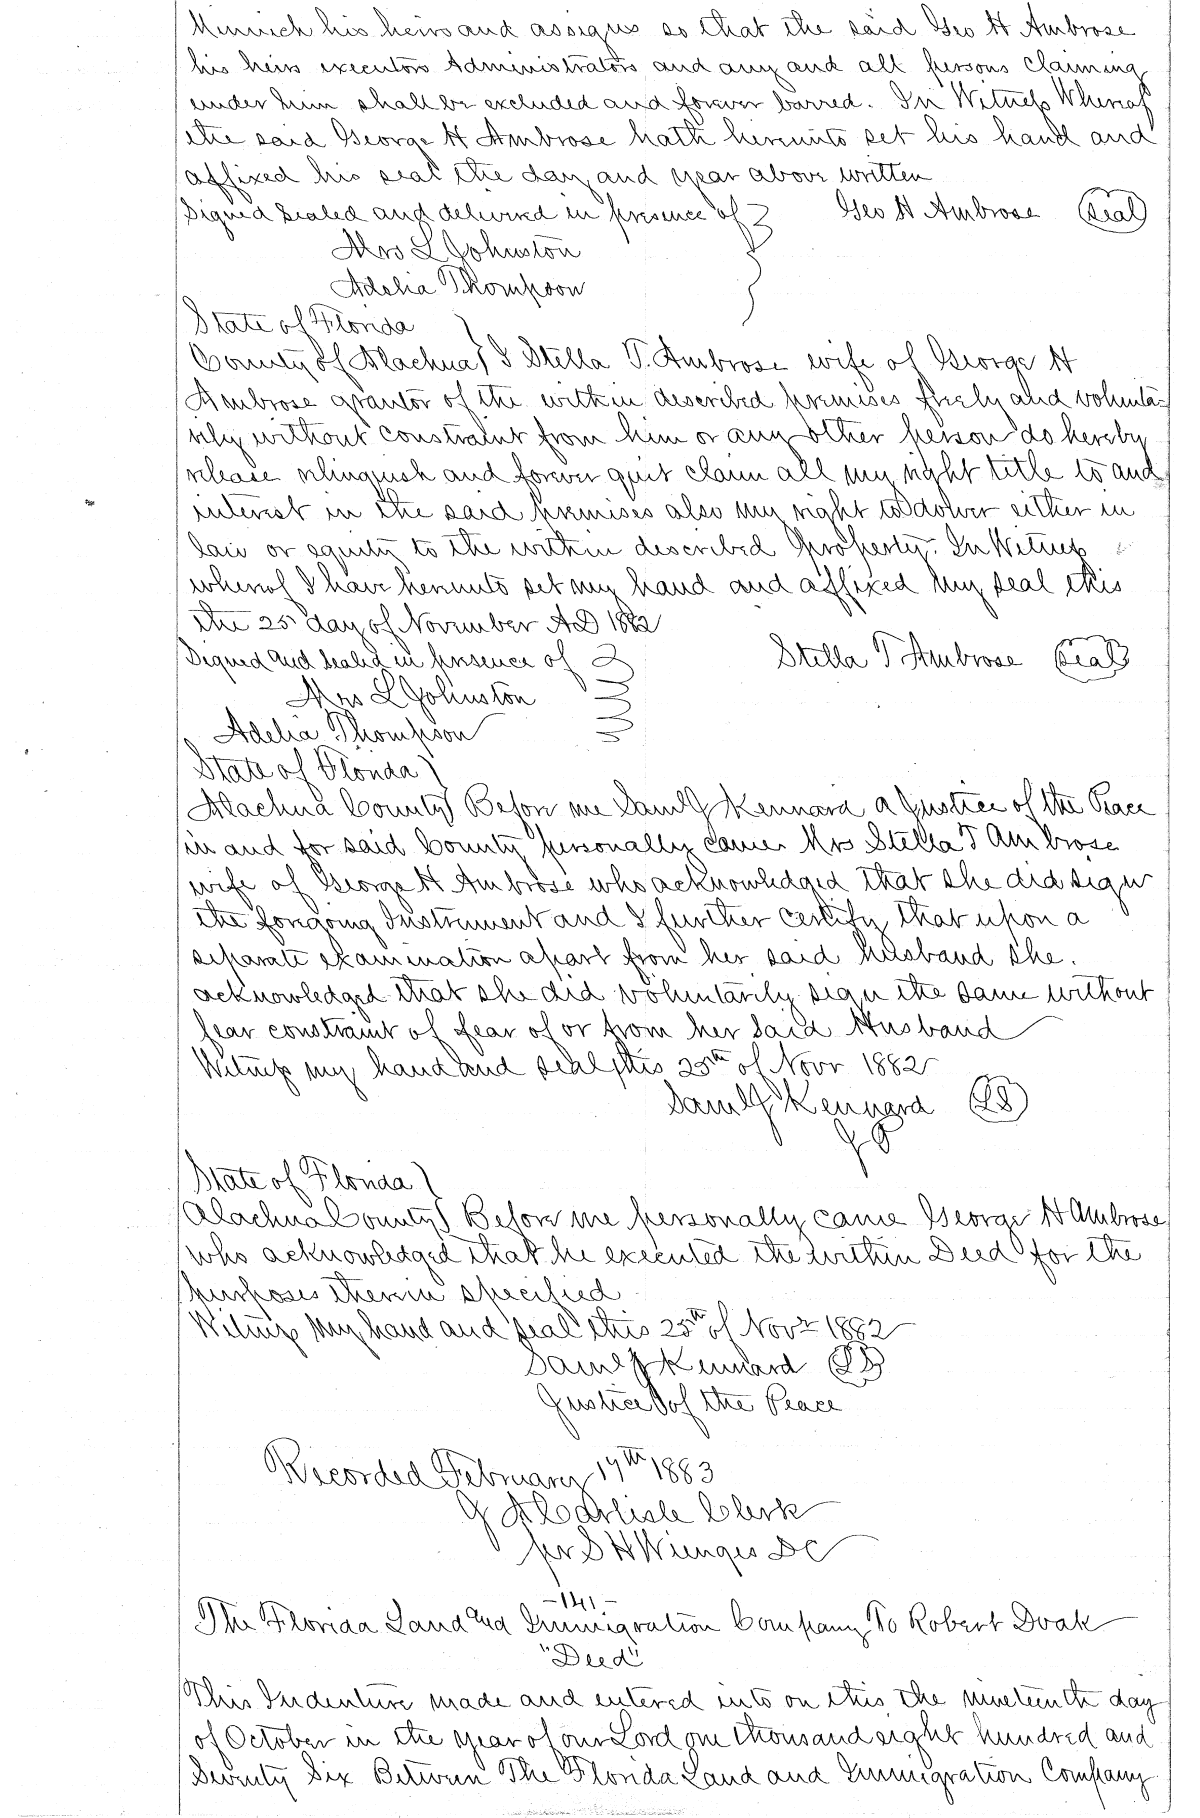 Minnich his heirs and assigns so that the said Geo H Ambrose
his heirs executors Administrators and any and all persons claiming
under him shall be excluded and forever barred. In Witness Whereof
the said George H Ambrose hath hereunto set his hand and
affixed his seal the day and year above written
Signed Sealed and delivered in presence of Geo H Ambrose Seal
Mrs L Johnston
Adelia Thompson
State of Florida
County of Alachua I Stella T. Ambrose wife of George H
Ambrose grantor of the within described premises freely and volunta-
rily without constraint from him or any other person do hereby
release relinquish and forever quit claim all my right title to and
interest in the said premises also my right to dower either in
law or equity to the within described property. In Witness
whereof I have hereunto set my hand and affixed my seal this
the 25 day of November AD 1882
Signed and sealed in presence of Stella T Ambrose Seal
Mrs L Johnston
Adelia Thompson
State of Florida
Alachua County Before me Saml J Kennard a Justice of the Peace
in and for said County personally came Mrs Stella T Ambrose
wife of George H Ambrose who acknowledged that she did sign
the forgoing Instrument and I further certify that upon a
separate examination apart from her said husband she.
acknowledged that she did voluntarily sign the same without
fear constraint of fear of or from her said Husband
Witness my hand and seal this 25th of Novr 1882
Saml J Kennard LS
JP
State of Florida
Alachua County Before me personally came George H Ambrose
who acknowledged that he executed the within Deed for the
purposes therein specified
Witness my hand and seal this 25th of Novr 1882
Saml J Kennard LS
Justice of the Peace
Recorded February 17th 1883
J A Carlisle Clerk
per S H Wienges DC
-141-
The Florida Land and Immigration Company To Robert Doak
"Deed"
This Indenture made and entered into on this the nineteenth day
of October in the year of our Lord one thousand eight hundred and
Seventy Six Between The Florida Land and Immigration Company